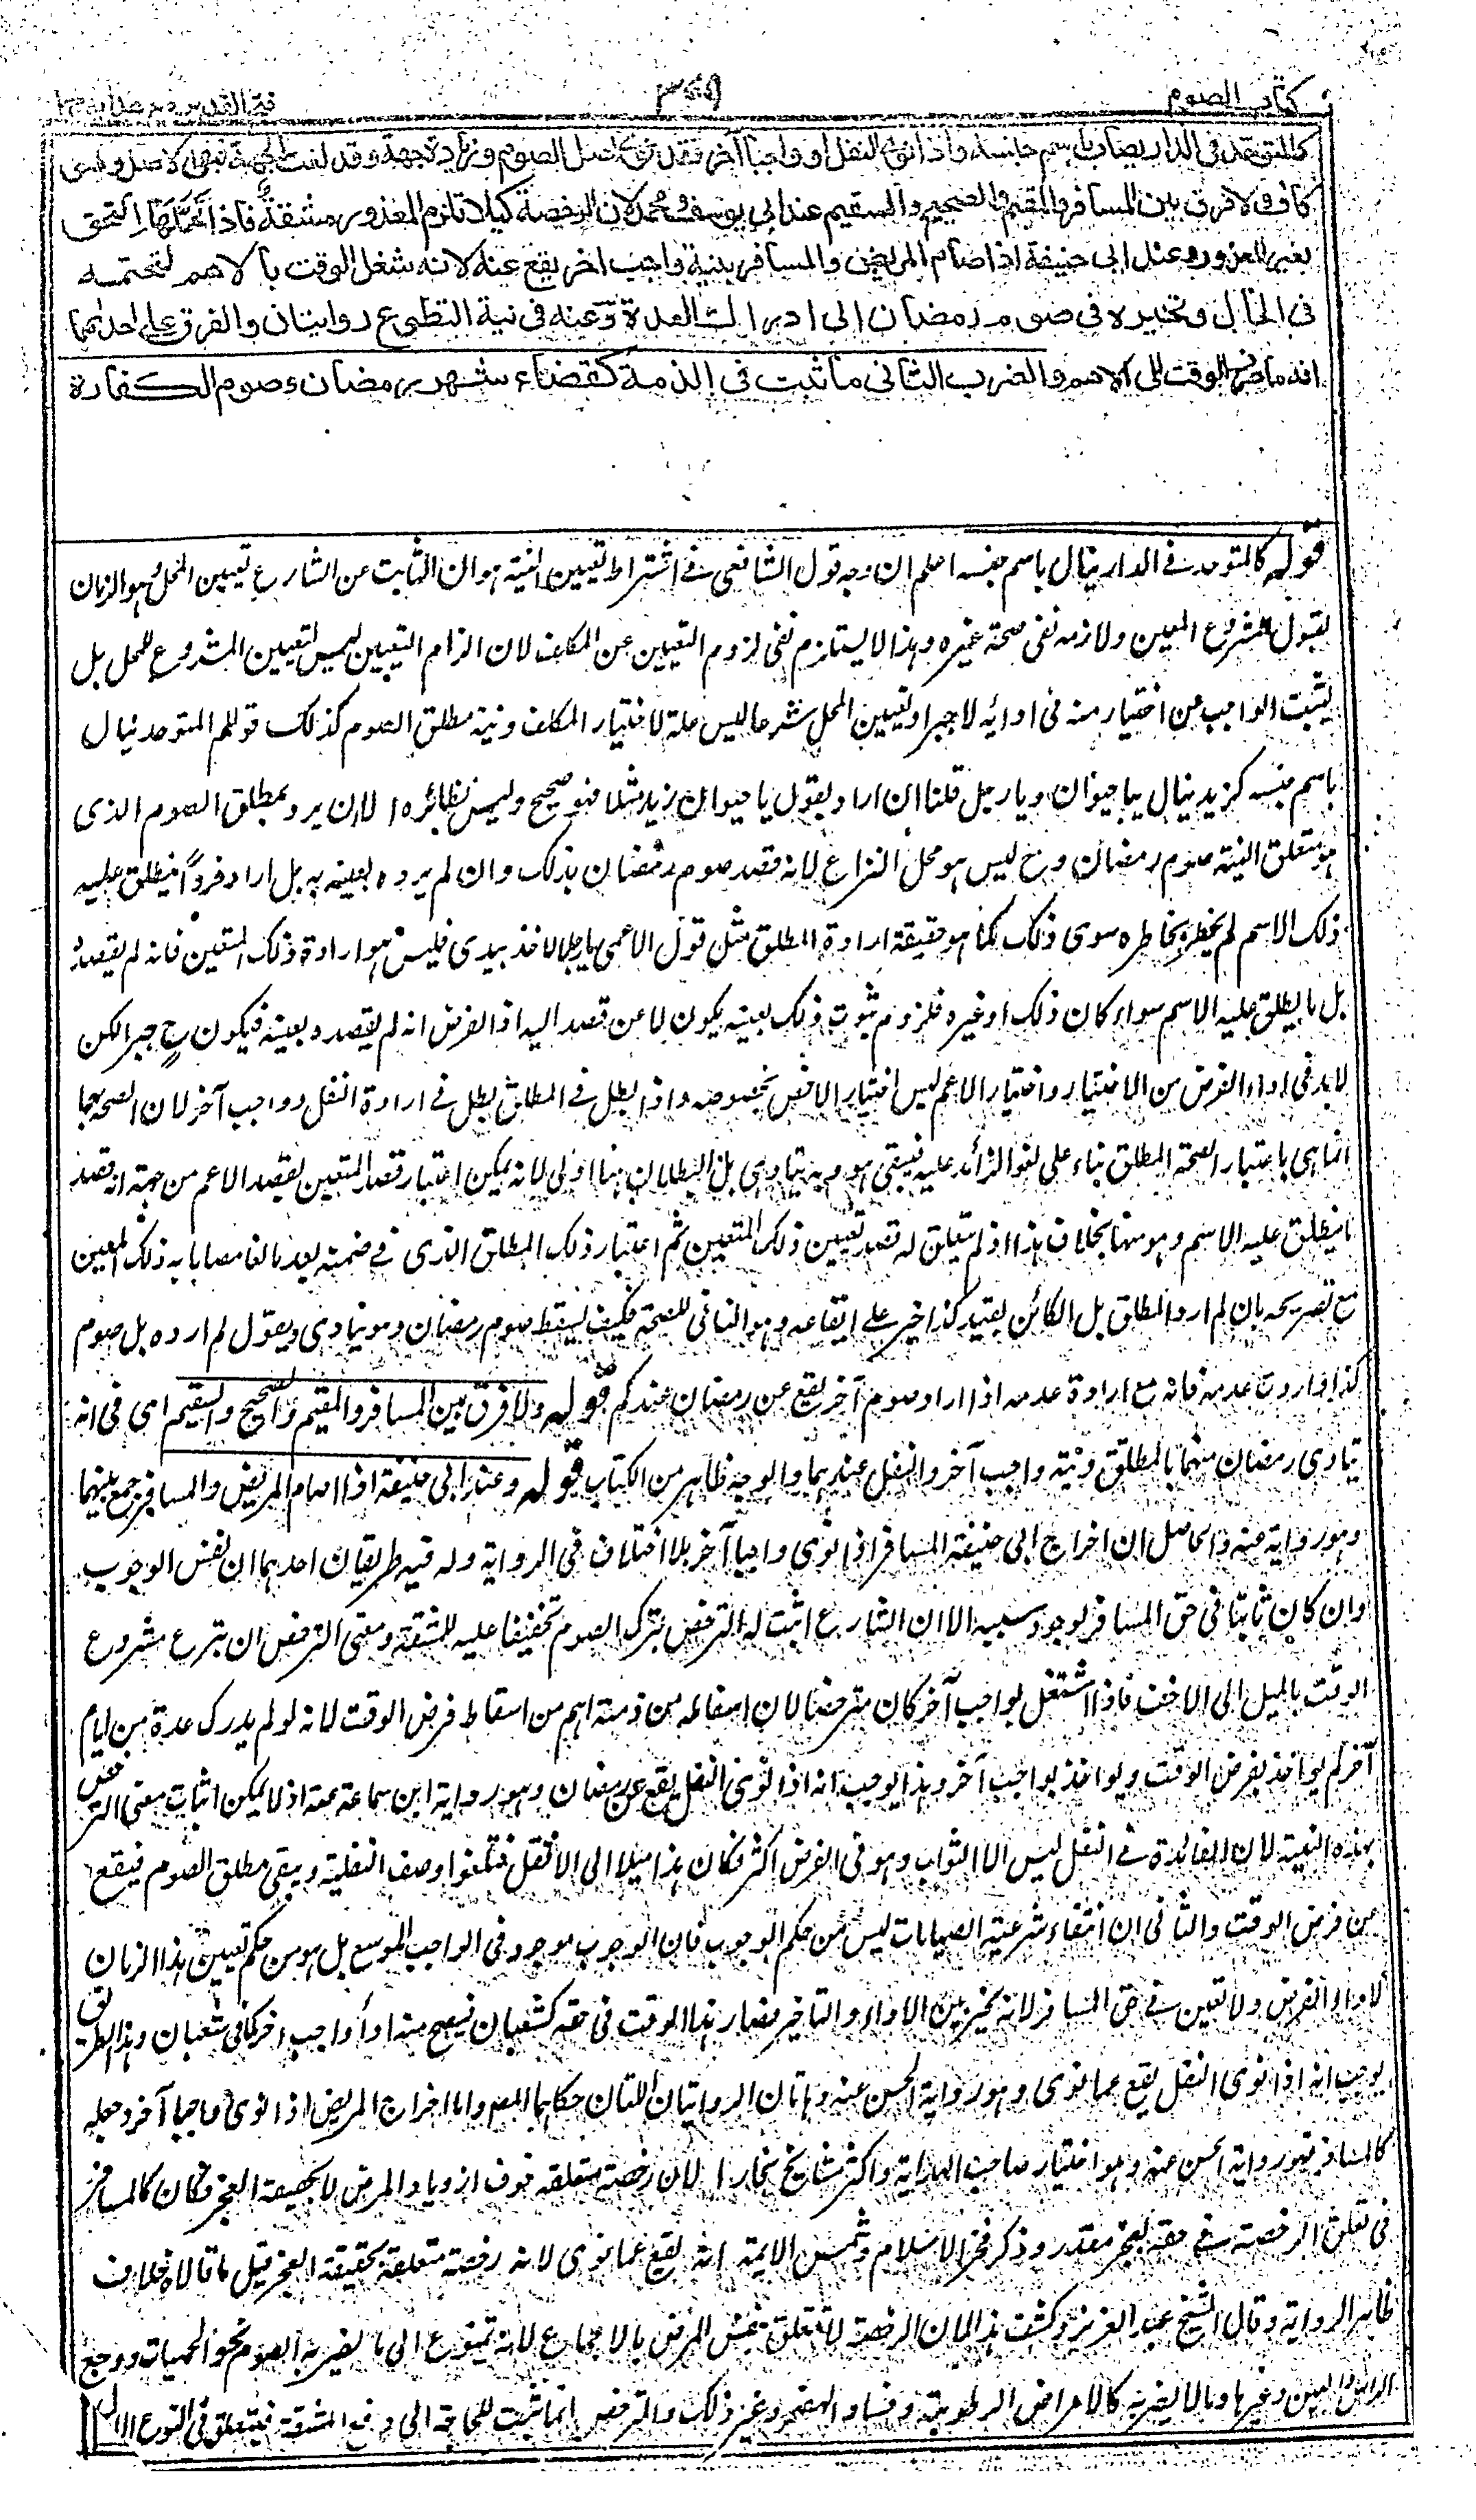 كتاب الصوم
۳۶۹
فتح القدير مع هدايه ج ا
كالمتوحد في الدار يصاب باسم جنسه واذا نوى النفل او واجبا آخر فقد نوى اصل الصوم وزيادة جهة وقد لغت الجهة فبقى الاصل وهو
كاف ولا فرق بين المسافر والمقيم والصحيح والسقيم عند ابى يوسف ومحمد لان الرخصة كيلا تلزم المعذور مشقة فاذا تحملها التحق
بغير المعذور وعند ابى حنيفة اذا صام المريض والمسافر بنية واجب اخر يقع عنه لانه شغل الوقت بالاهم لتحتمه
فى الحال وتخييره فى صوم رمضان الى ادراك العدة وعنه فى نية التطوع روايتان والفرق على احدهما
انه ما صرف الوقت الى الاهم والضرب الثانى ما ثبت فى الذمة كقضاء شهر رمضان وصوم الكفارة
قوله كالمتوحد فى الدار ينال باسم جنسه اعلم ان وجه قول الشافعى فى اشتراط تعيين النية هو ان الثابت عن الشارع تعيين المحل وهو الزمان
لقبول المشروع المعين ولازمه نفى صحة غيره وهذا لا يستلزم نفى لزوم التعيين عن المكلف لان الزام التعيين ليس لتعيين المشروع للمحل بل
ليثبت الواجب عن اختيار منه فى ادائه لا جبرا وتعيين المحل شرعا ليس علة لاختيار المكلف ونية مطلق الصوم كذلك قولهم المتوحد ينال
باسم جنسه كزيد ينال بيا حيوان ويا رجل قلنا ان اراد بقول يا حيوان زيد مثلا فهو صحيح وليس نظائره الا ان يرد بمطلق الصوم الذى
هو متعلق النية صوم رمضان وح ليس هو محل النزاع لانه قصد صوم رمضان بذلك وان لم يرده بعينه به بل اراد فردا يطلق عليه
ذلك الاسم لم يخطر بخاطره سوى ذلك كما هو حقيقة ارادة المطلق مثل قول الاعمى يا رجلا خذ بيدى فليس هو ارادة ذلك المتعين فانه لم يقصده
بل ما يطلق عليه الاسم سواء كان ذلك او غيره فلزوم ثبوت ذلك بعينه يكون لا عن قصد اليه اذ الفرض انه لم يقصده بعينه فيكون ح جبرا لكن
لا بد فى اداء الفرض من الاختيار واختيار الاعم ليس اختيار الاخص بخصوصه واذا بطل فى المطلق بطل فى ارادة النفل وواجب آخر لان الصحة بهما
انما هى باعتبار الصحة بالمطلق بناء على لغو الزائد عليه فيبقى هو وبه يتادى بل البطلان هنا اولى لانه يمكن اعتبار قصد المتعين بقصد الاعم من جهة انه قصد
ما ينطلق عليه الاسم وهو منها بخلاف هذا اذ لم يتعلق له قصد تعيين ذلك المتعين ثم اعتبار ذلك المطلق الذى فى ضمنه بعد ما لغا مصابا به ذلك المعين
مع تصريحه بان لم ارد المطلق بل الكائن بقيد كذا خير على ايقاعه وهو النافى للصحة فكيف يسقط صوم رمضان وهو ينادى ويقول لم ارده بل صوم
كذا واردت عدمه فانه مع ارادة عدمه اذا اراد صوم آخر يقع عن رمضان عندكم قوله ولا فرق بين المسافر والمقيم والصحيح والسقيم اى فى انه
يتادى رمضان منهما بالمطلق ونية واجب آخر والنفل عندهما والوجه ظاهر من الكتاب قوله وعند ابى حنيفة اذا صام المريض والمسافر جمع بينهما
وهو رواية عنه والحاصل ان اخراج ابى حنيفة المسافر اذا نوى واجبا آخر بلا اختلاف فى الرواية وله فيه طريقان احدهما ان نفس الوجوب
وان كان ثابتا فى حق المسافر لوجود سببه الا ان الشارع اثبت له الترخص بترك الصوم تخفيفا عليه للمشقة ومعنى الترخص ان يترع مشروع
الوقت بالميل الى الاخف فاذا اشتغل بواجب آخر كان مترخصا لان اسقاطه من ذمته اهم من اسقاط فرض الوقت لانه لو لم يدرك عدة من ايام
آخر لم يؤاخذ بفرض الوقت ويؤاخذ بواجب آخر وهذا يوجب انه اذا نوى النفل يقع عن رمضان وهو رواية ابن سماعة عنه اذ لا يمكن اثبات معنى الترخص
بهذه النية لان الفائدة فى النفل ليس الا الثواب وهو فى الفرض اكثر فكان هذا ميلا الى الاثقل فتلغوا وصف النفلية ويبقى مطلق الصوم فيقع
عن فرض الوقت والثانى ان انتفاء شرعية الصيامات ليس من حكم الوجوب فان الوجوب موجود فى الواجب الموسع بل هو من حكم تعيين هذا الزمان
لاداء الفرض ولا تعين فى حق المسافر لانه مخير بين الاداء والتاخير فصار هذا الوقت فى حقه كشعبان فيصح منه اداء واجب اخر كما فى شعبان وهذا الطريق
يوجب انه اذا نوى النفل يقع عما نوى وهو رواية الحسن عنه وهاتان الروايتان اللتان حكاهما المصم واما اخراج المريض اذا نوى واجبا آخر وجعله
كالمسافر فهو رواية الحسن عنه وهو اختيار صاحب الهداية واكثر مشايخ بخارا لان رخصته متعلقة بخوف ازدياد المرض لا بحقيقة العجز فكان كالمسافر
فى تعلق الرخصة فى حقه بعجز مقدر وذكر فخر الاسلام وشمس الائمة انه يقع عما نوى لانه رخصته متعلقة بحقيقة العجز قيل ما قالاه خلاف
ظاهر الرواية وقال الشيخ عبد العزيز وكشف هذا ان الرخصة لا تتعلق بنفس المرض بالاجماع لانه يتنوع الى ما يضر به الصوم نحو الحميات ووجع
الراس والعين وغيرها وما لا يضر به كالامراض الرطوبية وفساد الهضم وغير ذلك والترخص انما ثبت للحاجة الى دفع المشقة فيتعلق فى النوع الاول